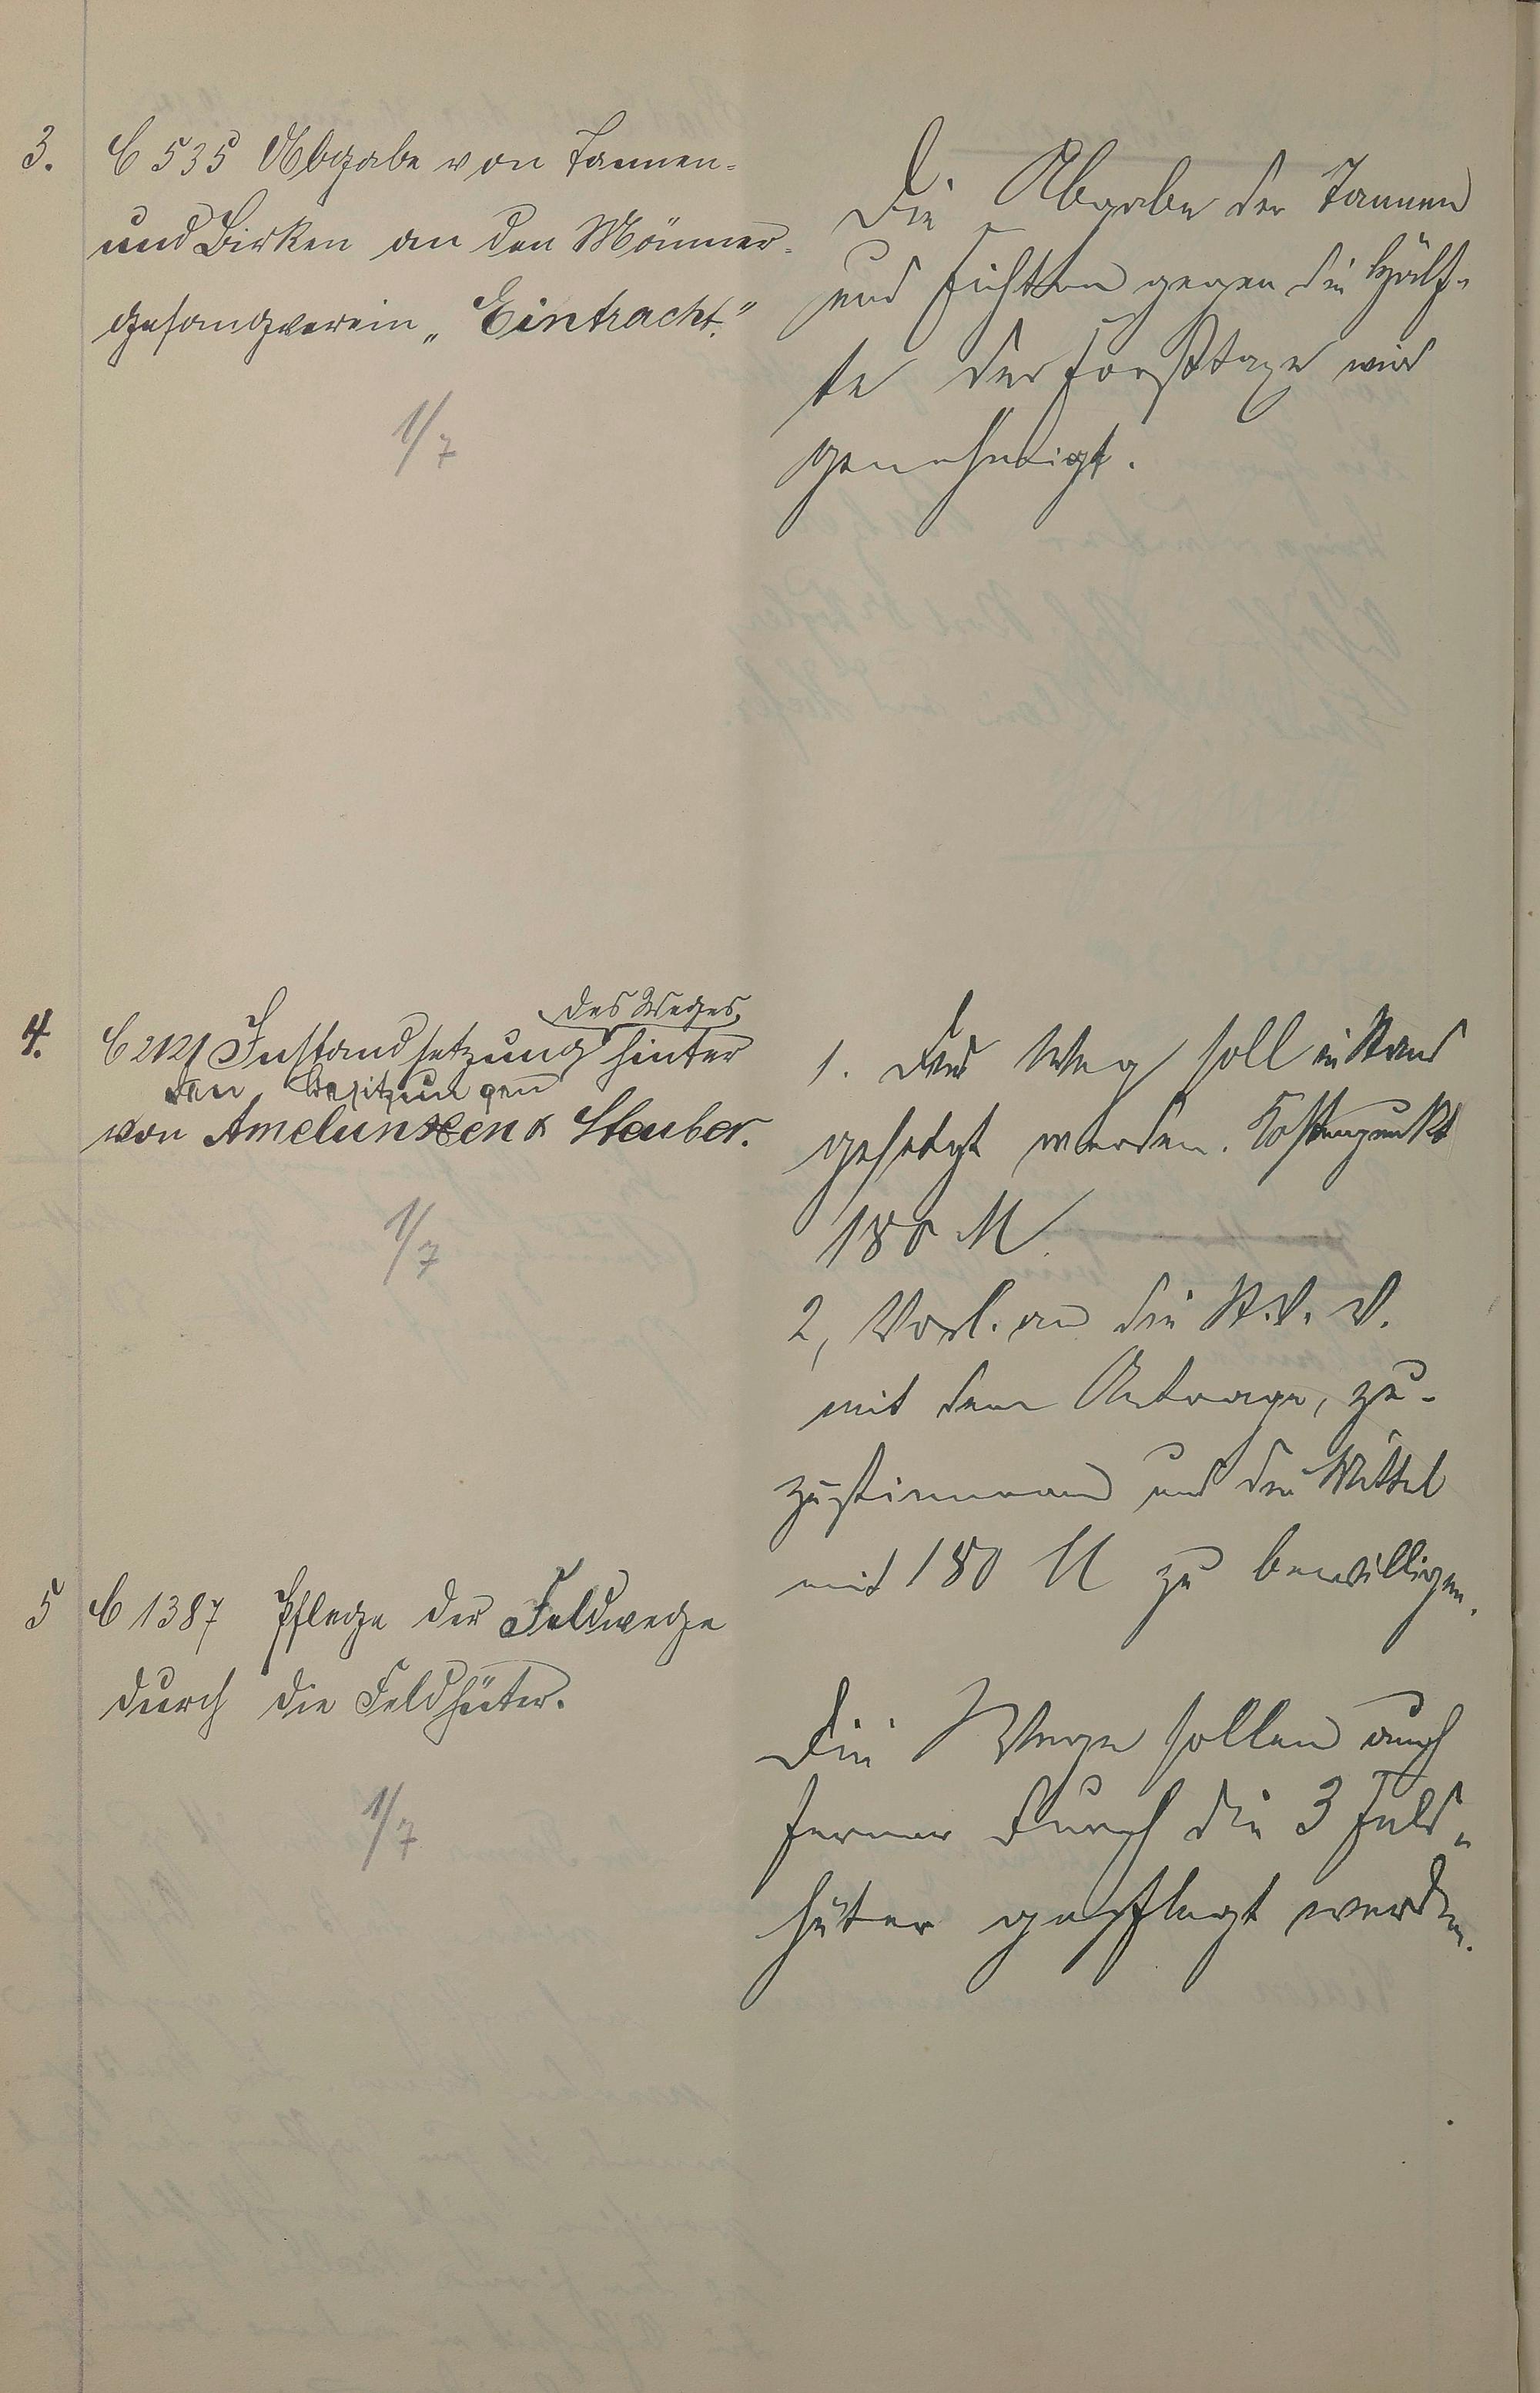 3. C 535 Abgabe von Tannen-
und Birken an den Männer-
gesangverein „Eintracht."
1/7
Die Abgabe der Tannen
und Fichten gegen die Hälf-
te der Forsttaxe wird
genehmigt.
4. C 2121 Instandsetzung des Weges hinter
den Besitzungen
von Amelunxen & Steuber.
1/7
1. Der Weg soll in Stand
gesetzt werden. Kostenpunkt
180 M
2, Vorl. an die St. V. V.
mit dem Antrage, zu-
zustimmen und die Mittel
mit 180 M zu bewilligen.
5 C 1387 Pflege der Feldwege
durch die Feldhüter.
1/7
Die Wege sollen auch
ferner durch die 3 Feld-
hüter gepflegt werden.